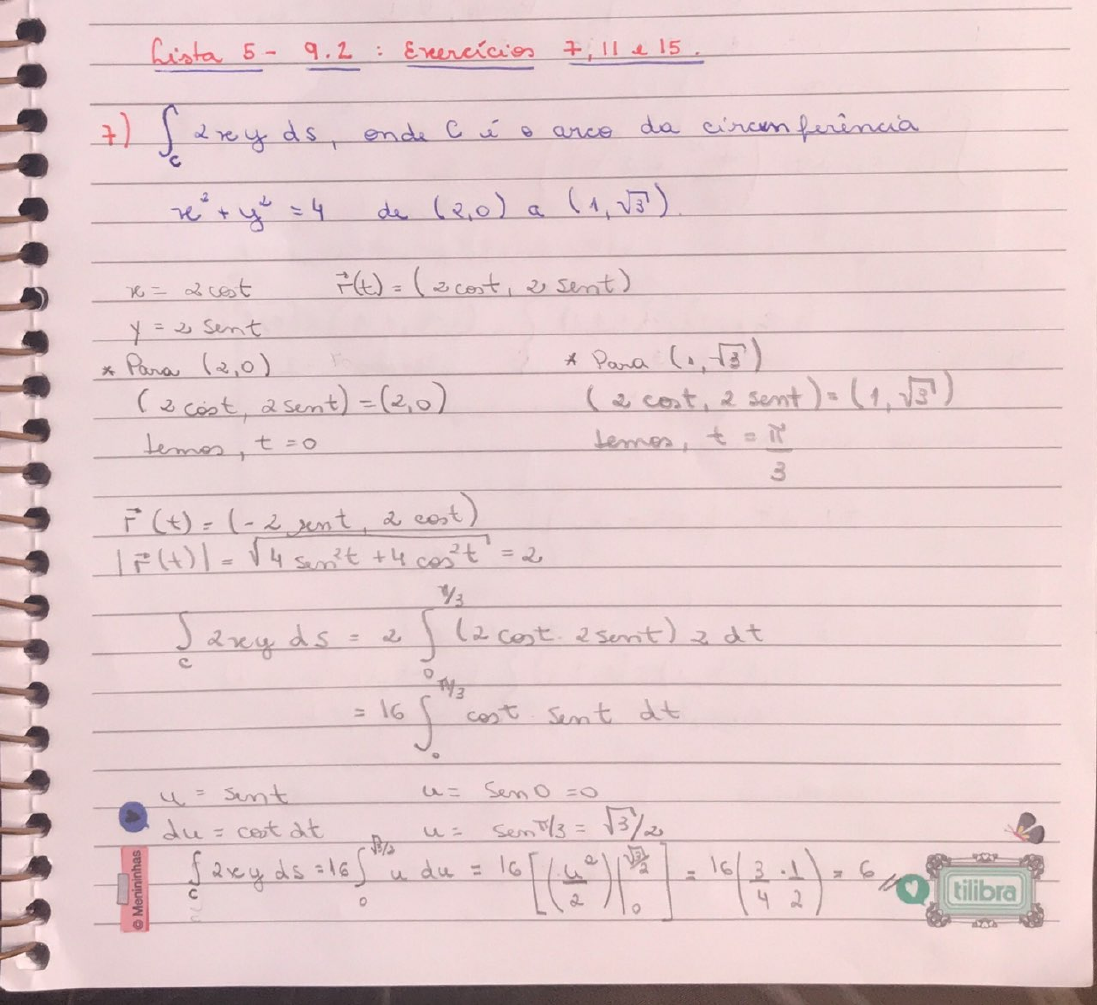 Lista 5 - 9.2 : Exercícios 7, 11 e 15.
7) ∫_C 2xy ds, onde C é o arco da circunferência
x² + y² = 4 de (2,0) a (1,√3).
x = 2cost r⃗(t) = (2cost, 2 sent)
y = 2 sent
* Para (2,0) * Para (1,√3)
(2 cost, 2sent) = (2,0) (2 cost, 2 sent) = (1,√3)
temos, t = 0 temos, t = π/3
r⃗(t) = (-2 sent, 2 cost)
|r⃗(t)| = √(4 sen²t + 4 cos²t) = 2
∫_C 2xy ds = 2 ∫_0^{π/3} (2 cost · 2sent) 2 dt
= 16 ∫_0^{π/3} cost · sent dt
u = sent u = sen0 = 0
du = cost dt u = senπ/3 = √3/2
∫_C 2xy ds = 16 ∫_0^{√3/2} u du = 16 [(u²/2)|_0^{√3/2}] = 16(3/4 · 1/2) = 6 //
© Menininhas
tilibra